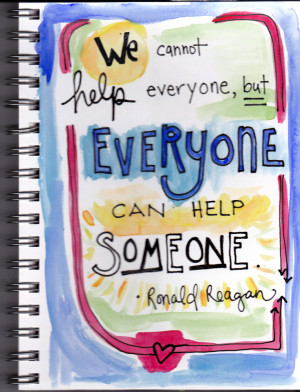 We cannot
help everyone, but
EVERYONE
CAN HELP
SOMEONE.
· Ronald Reagan